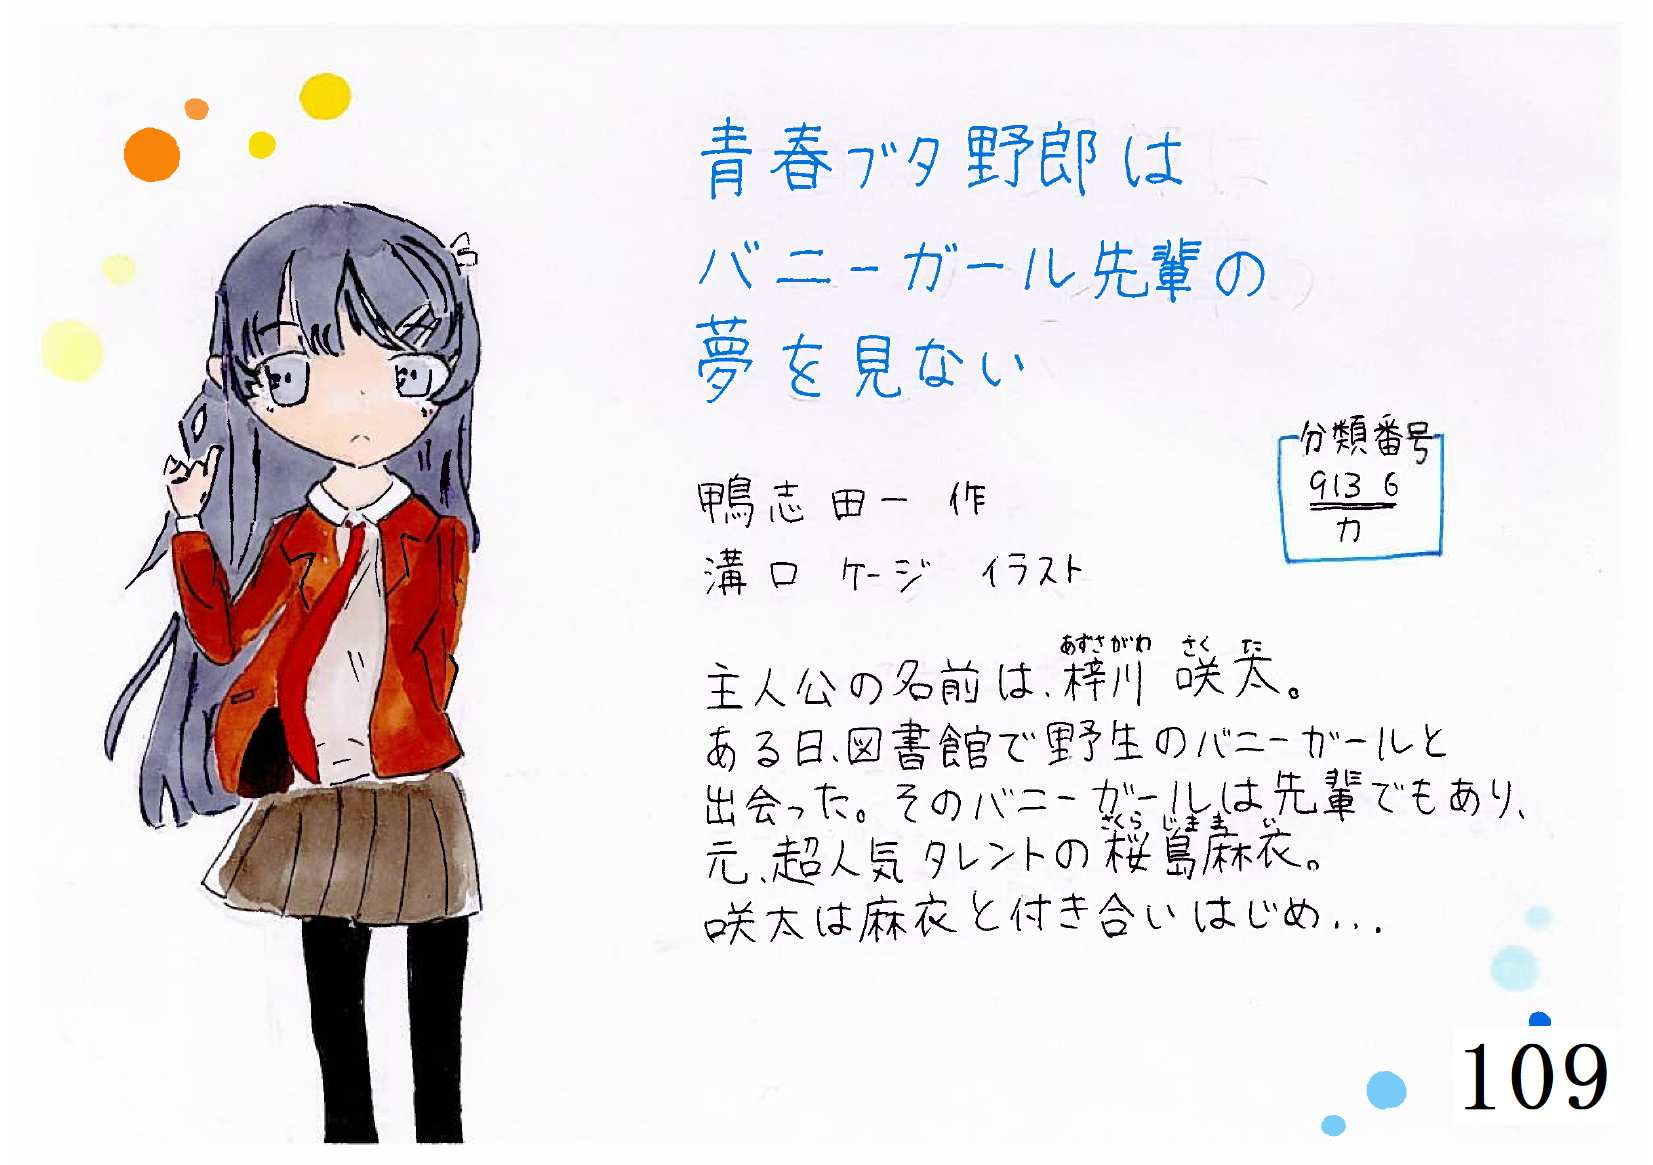 青春ブタ野郎は
バニーガール先輩の
夢を見ない
分類番号
913 6
カ
鴨志田一 作
溝口 ケージ イラスト
あずさがわ さくた
主人公の名前は、梓川 咲太。
ある日、図書館で野生のバニーガールと
出会った。そのバニーガールは先輩でもあり、
さくらじままい
元、超人気タレントの桜島麻衣。
咲太は麻衣と付き合いはじめ...
109